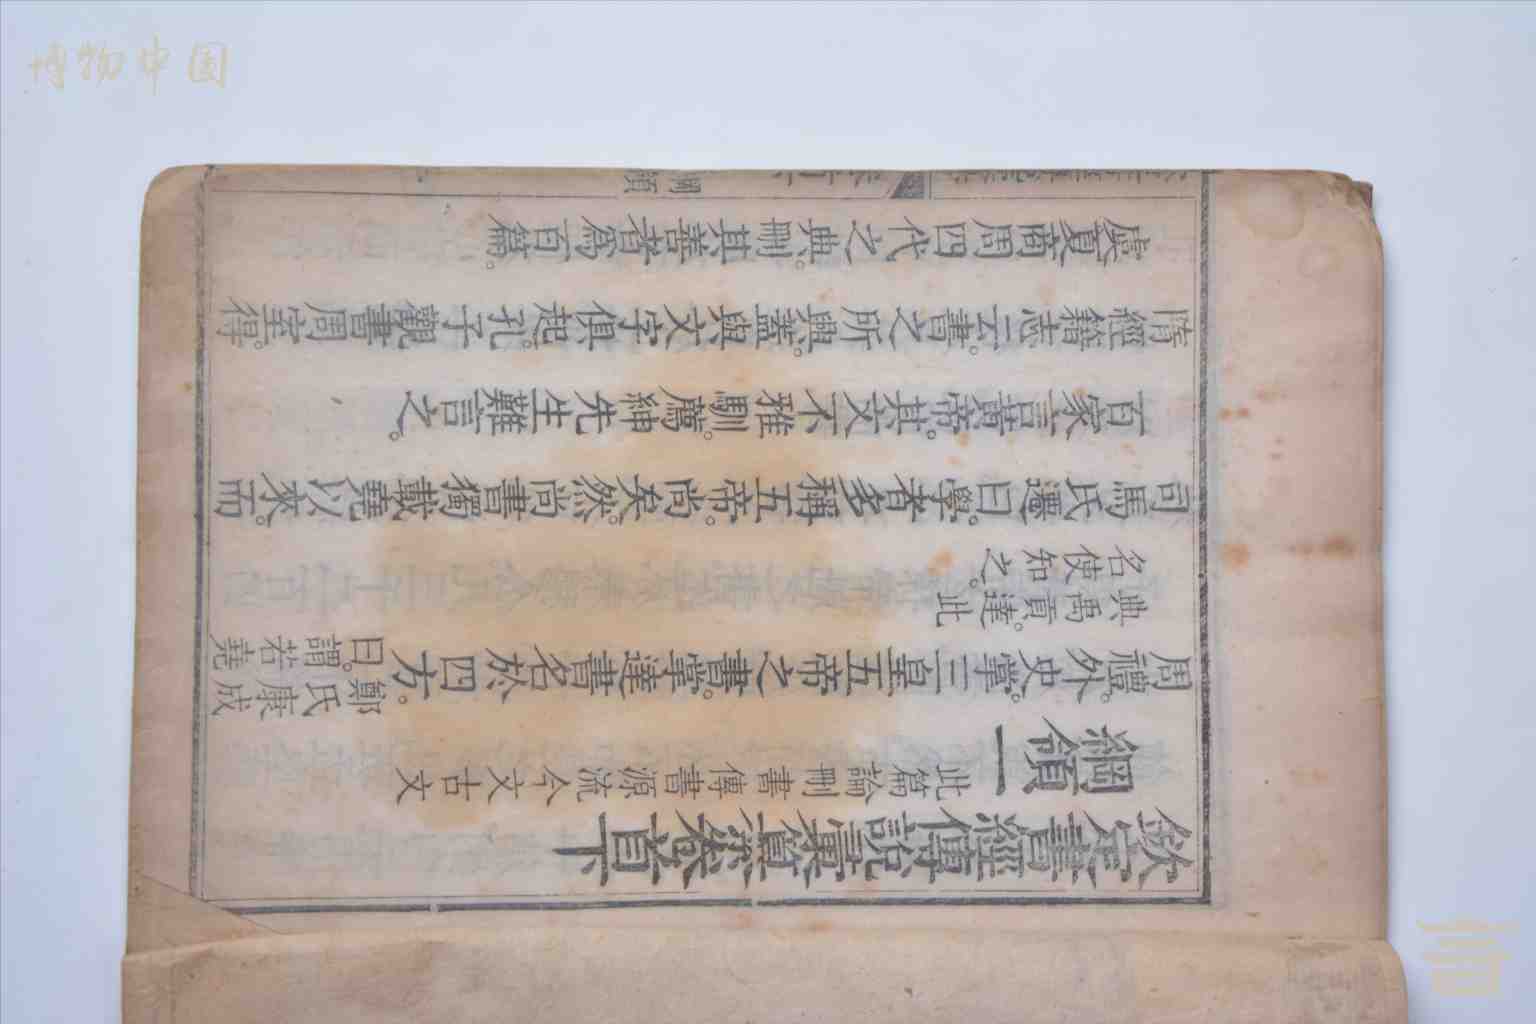 博物中国
欽定書經傳說彙纂卷首下
綱領一 此篇論刪書傳書源流今文古文
周禮。外史。掌三皇五帝之書。掌達書名於四方。鄭氏康成曰。謂若堯
典禹貢。達此名使知之。
司馬氏遷曰。學者多稱五帝。尚矣。然尚書獨載堯以來。而
百家言黃帝。其文不雅馴。薦紳先生難言之。
隋經籍志云。書之所興。蓋與文字俱起。孔子觀書周室。得
虞夏商周四代之典。刪其善者爲百篇。
綱領